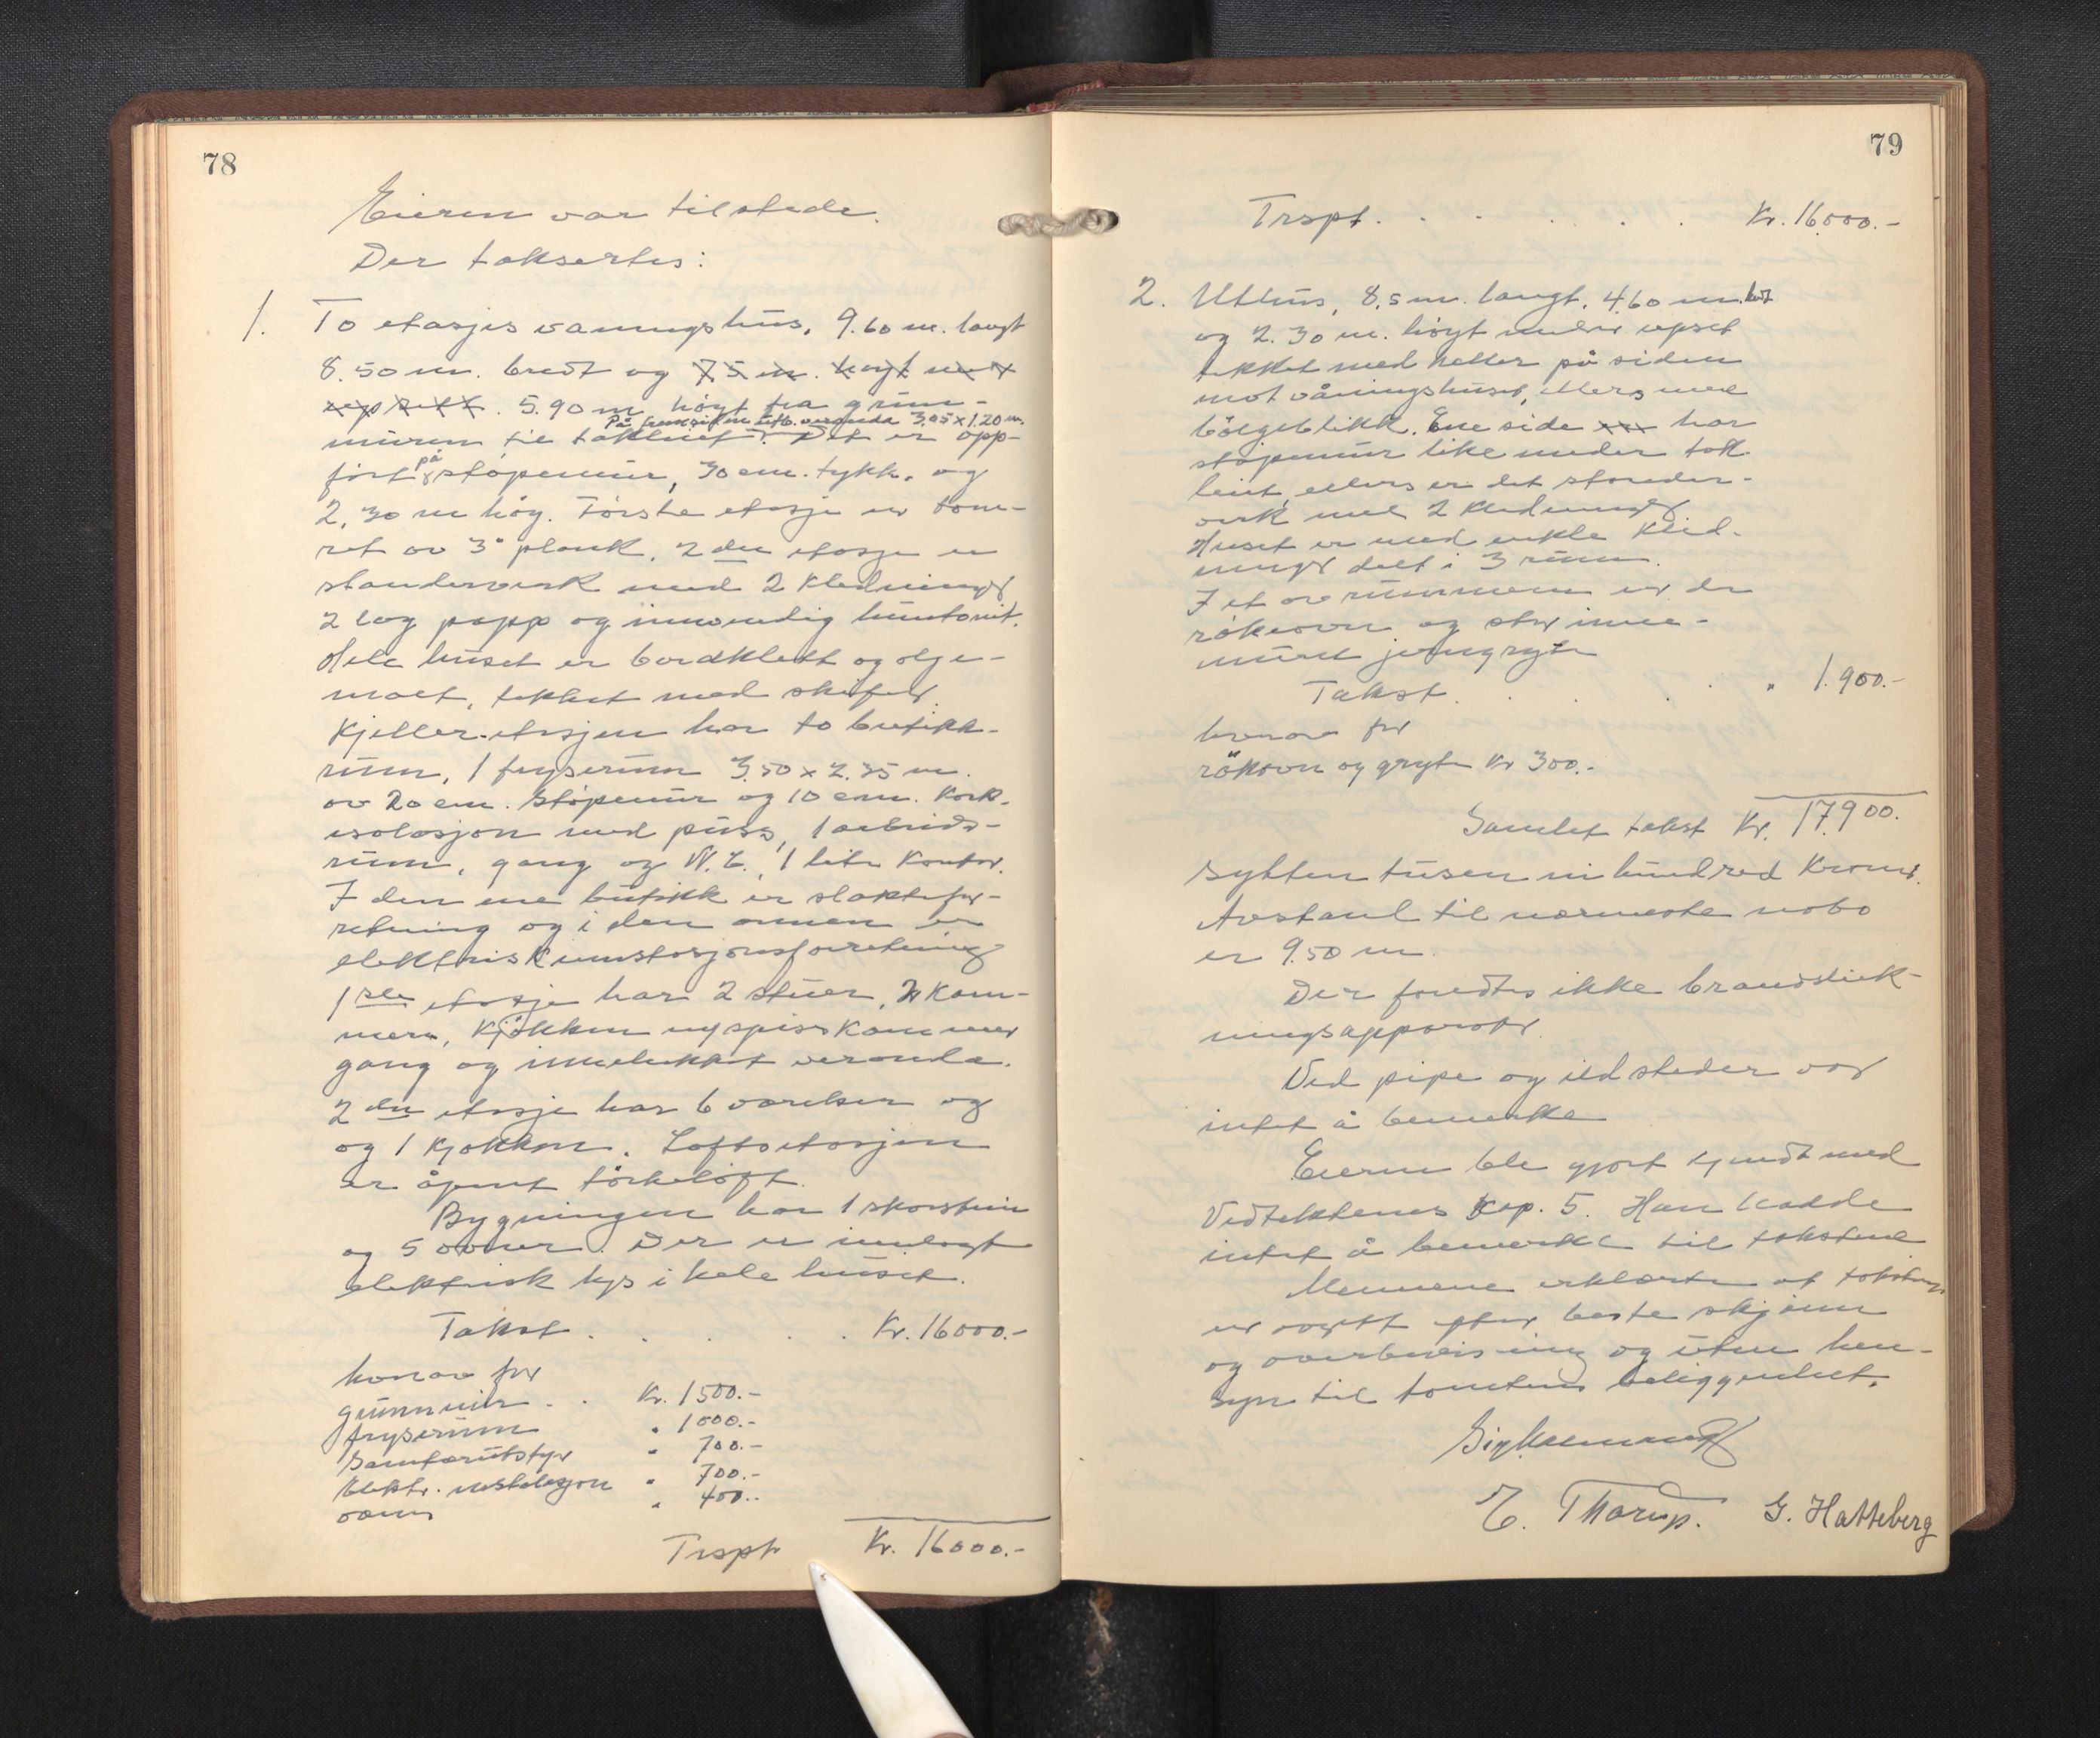 78
Eieren var tilstede.
Der taksertes:
1. To etasjes vaningshus, 9.60 m. langt
8.50 m. bredt og 75 m. høyt med
5.90 m høyt fra grun-
På fremsiden utb. veranda 3.05 x 1.20 m.
muren til takhiet. Det er opp-
ført på støpemur, 30 cm. tykk. og
2,30 m høy. Første etasje er tøm-
ret av 3" plank, 2den etasje er
standerverk med 2 kledninger
2 lag papp og innvendig huntonit.
Hele huset er bordklett og olje-
malt, tekket med skifer.
Kjeller-etasjen har to butikk-
rum, 1 fryserum 3.50 x 2.35 m.
av 20 cm. støpemur og 10 cm. kork-
isolasjon med puss, 1 arbeids-
rum, gang og W.C., 1 lite kontor.
I den ene butikk er slakterfor-
retning og i den annen er
elektrisk innstasjonsforretning
1ste etasje har 2 stuer, 2 kam-
mers, kjøkken m/spiskammer
gang og innelukket veranda.
2den etasje har 6 værelser og
og 1 kjøkken. Loftsetasjen
er åpent tørkeloft.
Bygningen har 1 skorstein
og 5 ovner. Der er innlagt
elektrisk lys i hele huset.
Takst . . . . . Kr. 16000.-
hvorav for
grunnmur . . Kr. 1500.-
fryserum " 1000.-
Sanitærutstyr " 700.-
Elektr. installasjon " 700.-
ovner " 400.-
Trspt Kr. 16000.-
79
Trspt. . . . . . Kr. 16000.-
2. Uthus, 8,5 m. langt, 4.60 m. bredt
og 2.30 m. høyt under opset
tekket med heller på siden
mot våningshuset, ellers med
bølgeblikk. Ene side har
støpemur like under tak-
leiet, ellers er det stander-
verk med 2 kledninger
Huset er med enkle kled-
ninger delt i 3 rum.
I et av rummene er der
røkeovn og stor inne-
muret jerngryte
Takst . . . . " 1.900.-
hvorav for
røkovn og gryte Kr 300.-
Samlet takst Kr. 17.900.
Sytten tusen ni hundred Kroner.
Avstand til nærmeste nabo
er 9.50 m.
Der fandtes ikke brandsluk-
ningsapparater
Ved pipe og ildsteder var
intet å bemerke
Eieren ble gjort kjendt med
Vedtektenes Kap. 5. Han hadde
intet å bemerke til takstene
Mennene erklærte at taksten
er avgitt efter beste skjønn
og overbevisning og uten hen-
syn til tomtens beliggenhet.
E. Thorup. G. Hatteberg